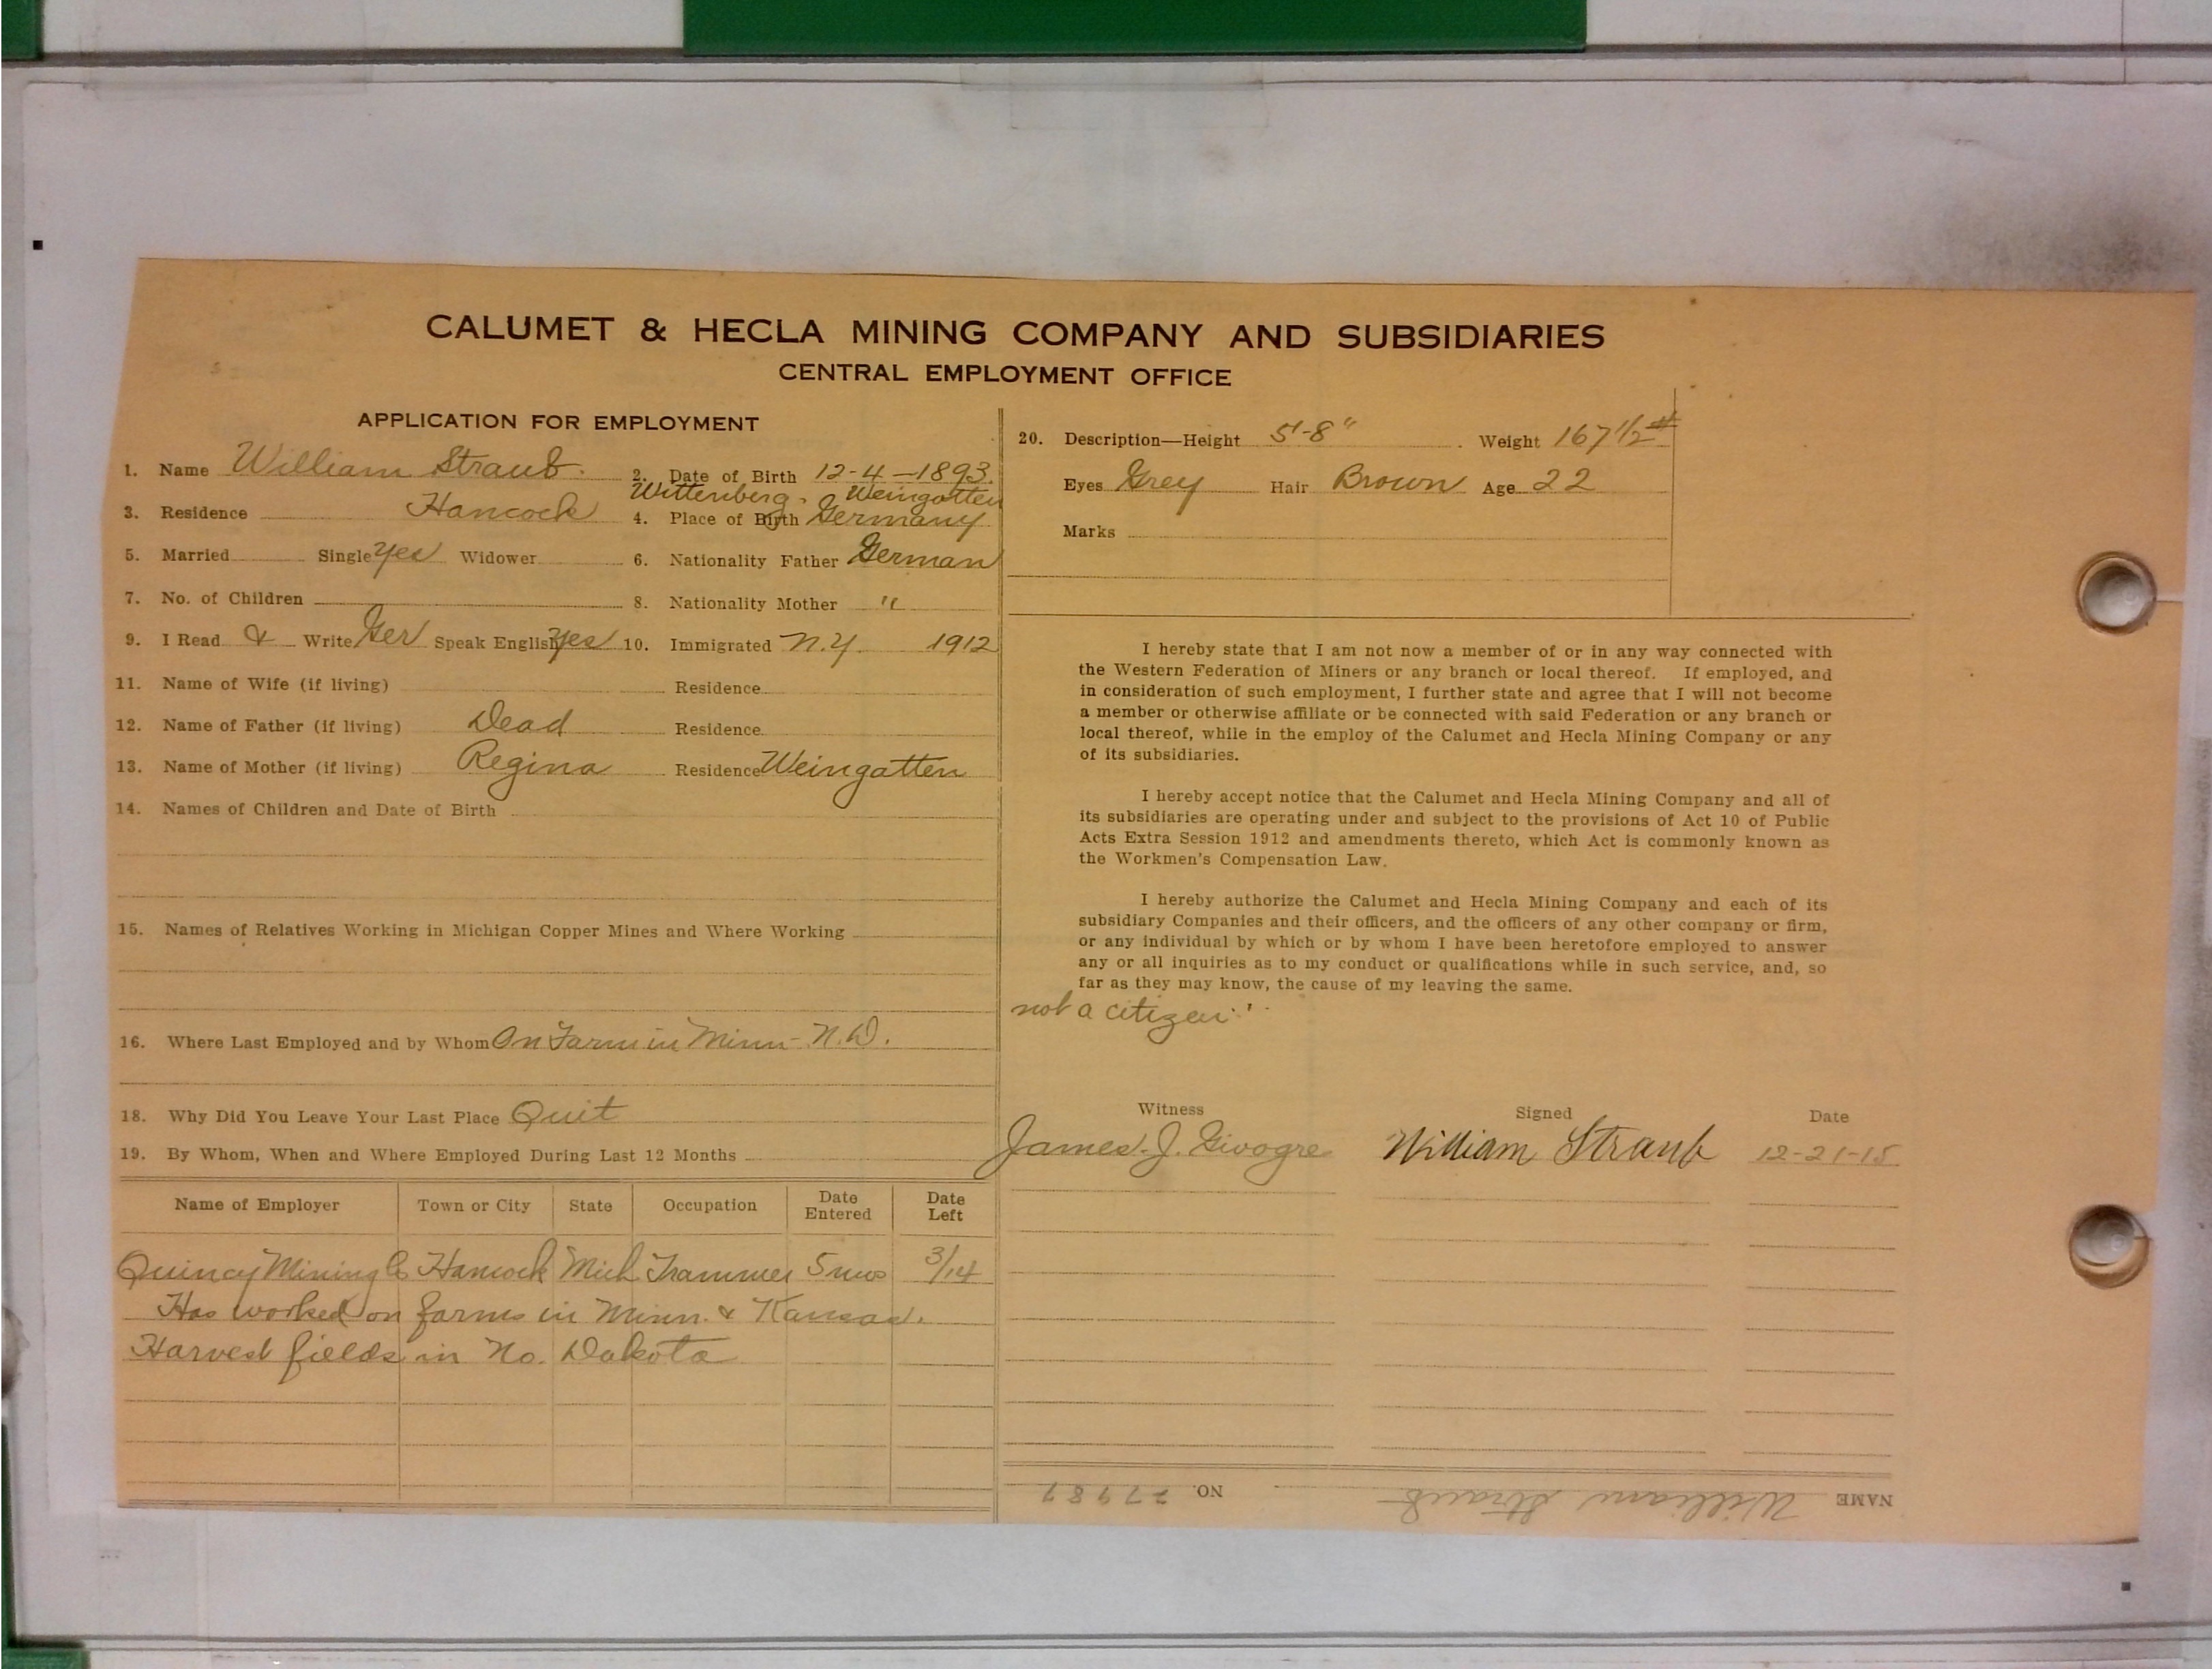 CALUMET & HECLA MINING COMPANY AND SUBSIDIARIES
CENTRAL EMPLOYMENT OFFICE
APPLICATION FOR EMPLOYMENT
1. Name William Straub. 2. Date of Birth 12-4-1893.
Wittenberg. Weingatten
3. Residence Hancock 4. Place of Birth Germany
5. Married Single yes Widower 6. Nationality Father German
7. No. of Children 8. Nationality Mother "
9. I Read & Write Ger Speak English yes 10. Immigrated N.Y. 1912
11. Name of Wife (if living) Residence
12. Name of Father (if living) Dead Residence
13. Name of Mother (if living) Regina Residence Weingatten
14. Names of Children and Date of Birth
15. Names of Relatives Working in Michigan Copper Mines and Where Working
16. Where Last Employed and by Whom On Farm in Minn - N.D.
18. Why Did You Leave Your Last Place Quit
19. By Whom, When and Where Employed During Last 12 Months
Name of Employer Town or City State Occupation Date Entered Date Left
Quincy Mining Co Hancock Mich Trammer 5 mos 3/14
Has worked on farms in Minn. & Kansas.
Harvest fields in No. Dakota
20. Description—Height 5'-8" Weight 167 1/2 #
Eyes Grey Hair Brown Age 22
Marks
I hereby state that I am not now a member of or in any way connected with
the Western Federation of Miners or any branch or local thereof. If employed, and
in consideration of such employment, I further state and agree that I will not become
a member or otherwise affiliate or be connected with said Federation or any branch or
local thereof, while in the employ of the Calumet and Hecla Mining Company or any
of its subsidiaries.
I hereby accept notice that the Calumet and Hecla Mining Company and all of
its subsidiaries are operating under and subject to the provisions of Act 10 of Public
Acts Extra Session 1912 and amendments thereto, which Act is commonly known as
the Workmen's Compensation Law.
I hereby authorize the Calumet and Hecla Mining Company and each of its
subsidiary Companies and their officers, and the officers of any other company or firm,
or any individual by which or by whom I have been heretofore employed to answer
any or all inquiries as to my conduct or qualifications while in such service, and, so
far as they may know, the cause of my leaving the same.
not a citizen
Witness Signed Date
James. J. Givogre William Straub 12-21-15
NAME William Straub NO. 27987